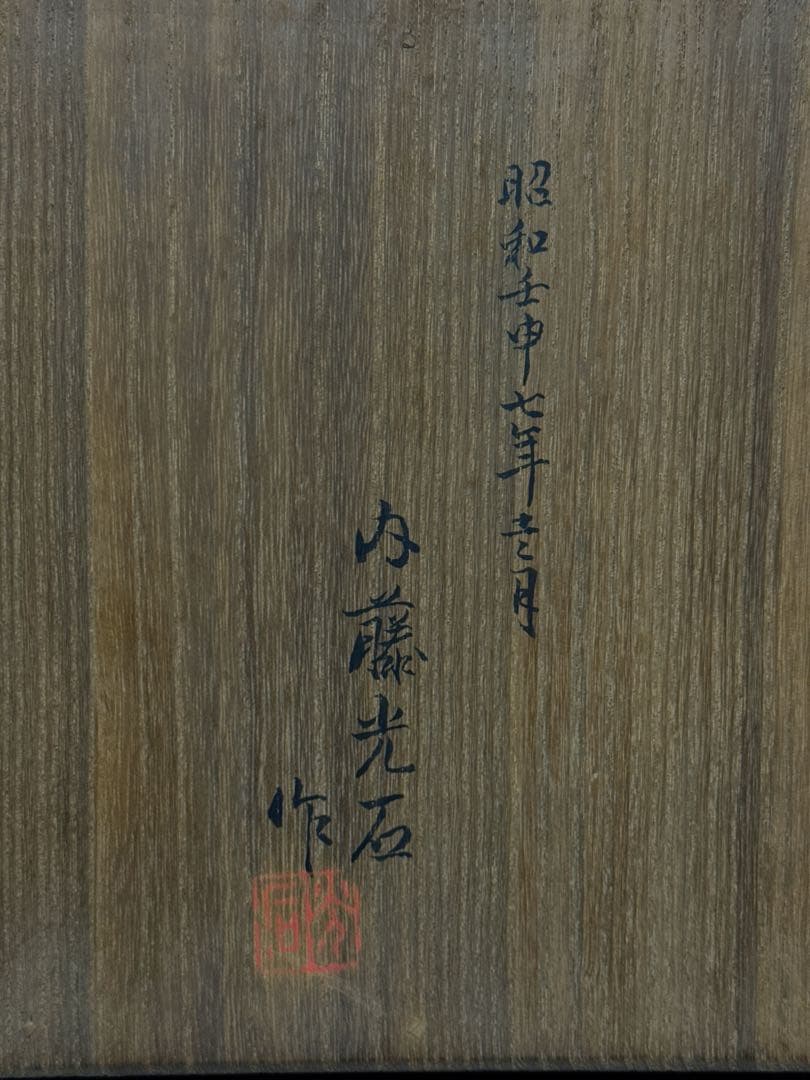 昭和壬申七年十二月
内藤光石
作
光石